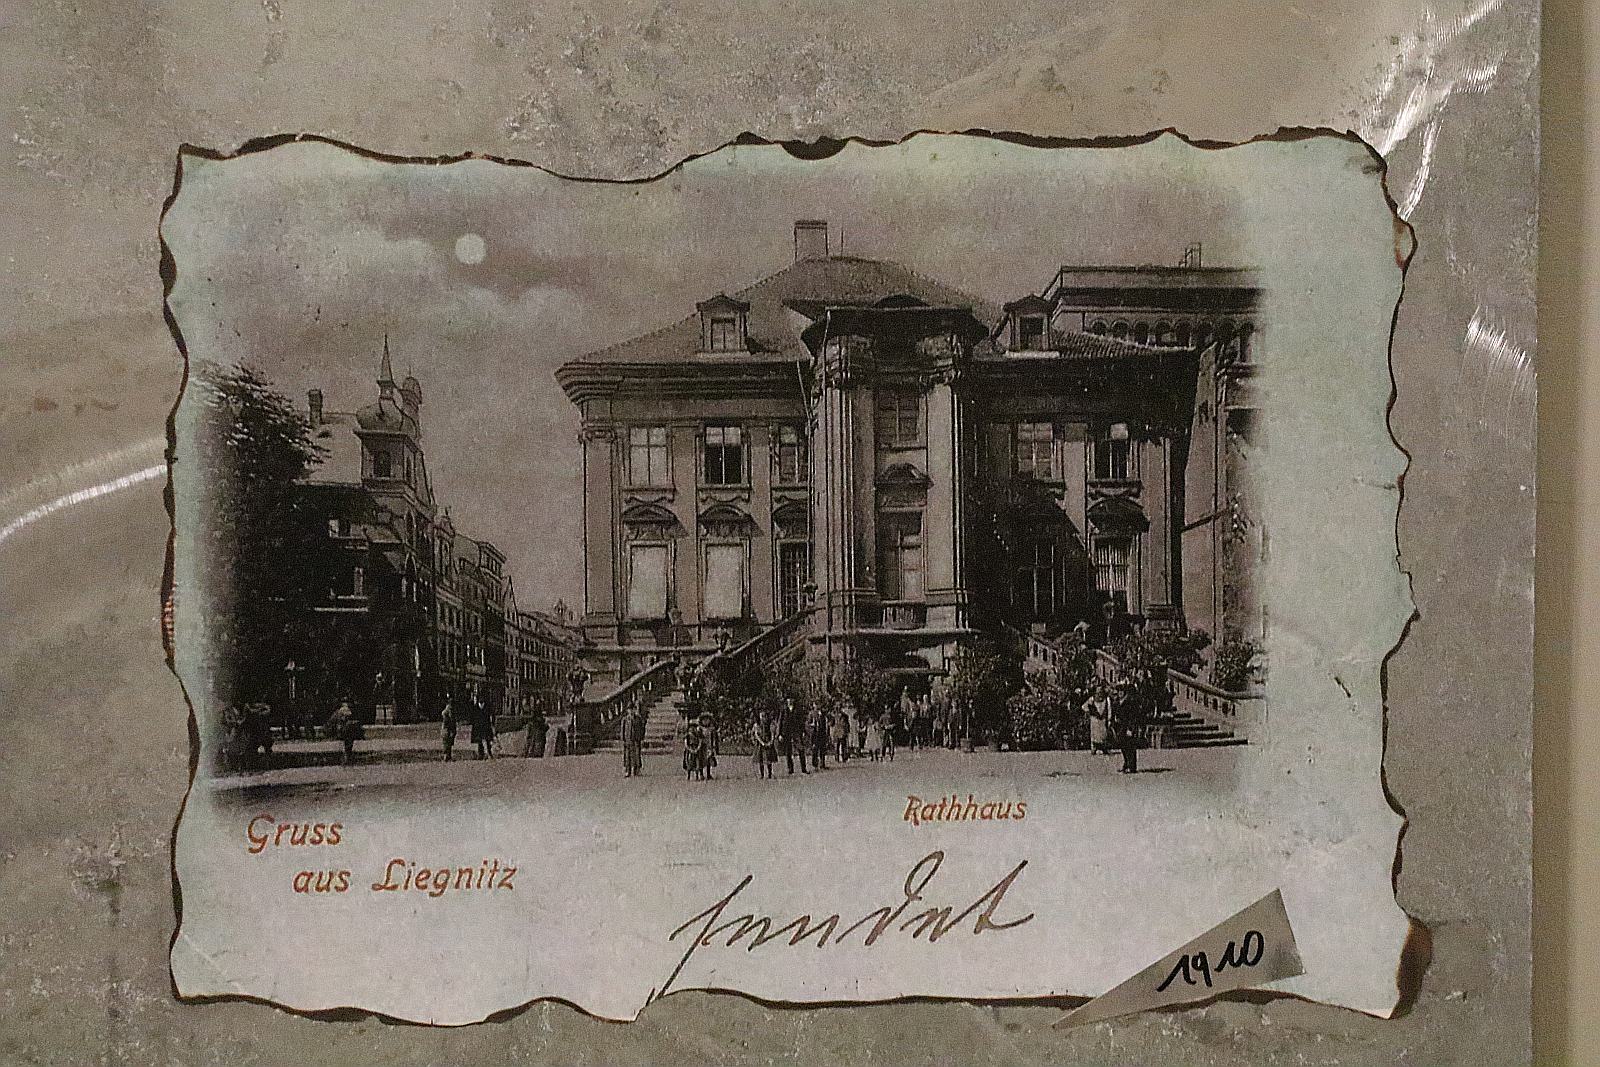 Rathhaus
Gruss
aus Liegnitz
sendet
1910